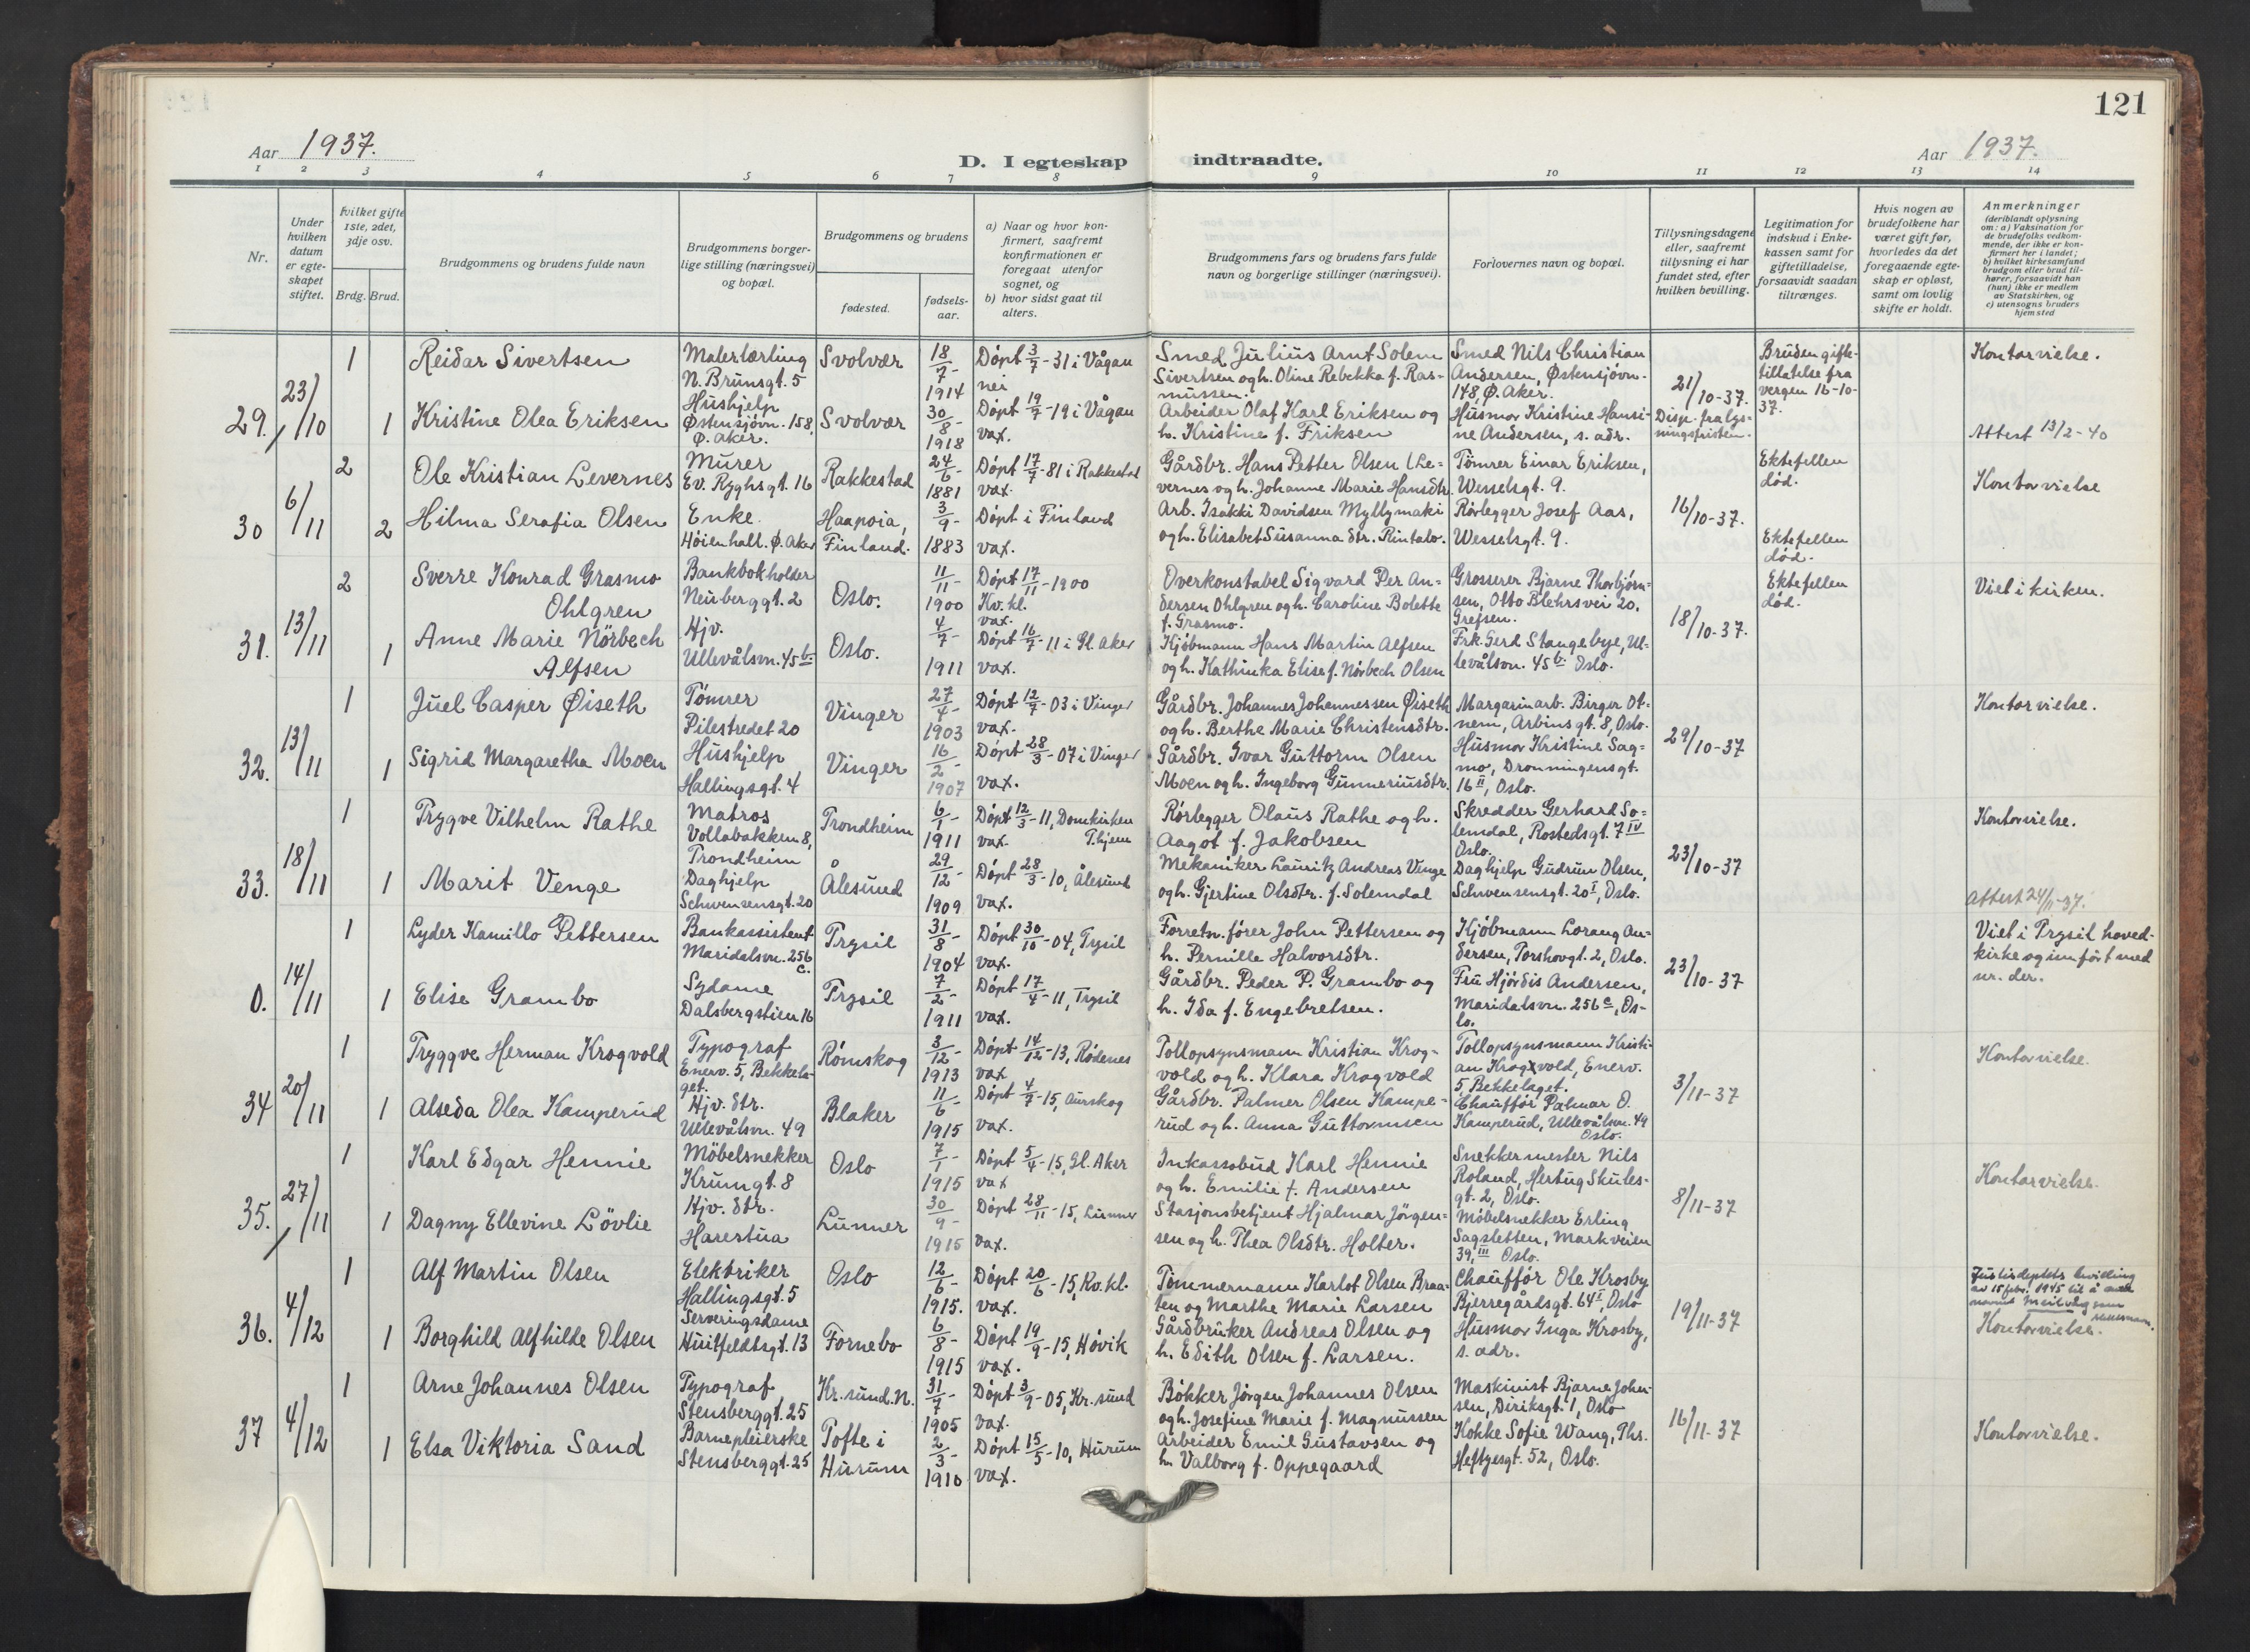 121
Aar 1937.
D. I egteskap indtraadte.
Aar 1937.
1 2 3 4 5 6 7 8 9 10 11 12 13 14
Nr.
Under
hvilken
datum
er egte-
skapet
stiftet.
hvilket gifte
1ste, 2det,
3dje osv.
Brdg. Brud.
Brudgommens og brudens fulde navn
Brudgommens borger-
lige stilling (næringsvei)
og bopæl.
Brudgommens og brudens
fødested.
fødsels-
aar.
a) Naar og hvor kon-
firmert, saafremt
konfirmationen er
foregaat utenfor
sognet, og
b) hvor sidst gaat til
alters.
Brudgommens fars og brudens fars fulde
navn og borgerlige stillinger (næringsvei).
Forlovernes navn og bopæl.
Tillysningsdagene
eller, saafremt
tillysning ei har
fundet sted, efter
hvilken bevilling.
Legitimation for
indskud i Enke-
kassen samt for
giftetilladelse,
forsaavidt saadan
tiltrænges.
Hvis nogen av
brudefolkene har
været gift før,
hvorledes da det
foregaaende egte-
skap er opløst,
samt om lovlig
skifte er holdt.
Anmerkninger
(deriblandt oplysning
om: a) Vaksination for
de brudefolks vedkom-
mende, der ikke er kon-
firmert her i landet;
b) hvilket kirkesamfund
brudgom eller brud til-
hører, forsaavidt han
(hun) ikke er medlem
av Statskirken, og
c) utensogns bruders
hjemsted
29. 23/10
1
Reidar Sivertsen
Malerlærling
N. Brunsgt. 5
Svolvær
18/7-
1914
Döpt 3/7-31 i Vågan
nei
Smed Julius Arnt Solem
Sivertsen og h. Oline Rebekka f. Ras-
mussen.
Smed Nils Christian
Andersen, Østensjövn.
148, Ø. Aker.
21/10-37.
Disp. fra lys-
ningsfristen.
Bruden gifte-
tillatelse fra
vergen 16-10-
37.
Kontorvielse.
1
Kristine Olea Eriksen
Hushjelp
Østensjövn. 158,
Ø. Aker.
Svolvær
30/8-
1918
Döpt 19/7-19 i Vågan
vax.
Arbeider Olaf Karl Eriksen og
h. Kristine f. Friksen
Husmor Kristine Hansi-
ne Andersen, s. adr.
Attest 13/2-40
30 6/11
2
Ole Kristian Levernes
Murer
Ev. Ryghsgt. 16
Rakkestad
24/6-
1881
Döpt 17/7-81 i Rakkestad
vax.
Gårdbr. Hans Petter Olsen (Le-
vernes og h. Johanne Marie Hansdtr.
Tömrer Einar Eriksen,
Wesselsgt. 9.
16/10-37.
Ektefellen
död.
Kontorvielse
2
Hilma Serafia Olsen
Enke.
Höienhall. Ø. Aker
Haapoia,
Finland.
3/9-
1883
Döpt i Finland
vax.
Arb. Isakki Davidsen Myllymaki
og h. Elisabet Susanna dtr. Rintalo.
Rörlegger Josef Aas,
Wesselsgt. 9.
Ektefellen
död.
31. 13/11
2
Sverre Konrad Grasmo
Ohlgren
Bankbokholder
Neuberggt. 2
Oslo.
11/11-
1900
Döpt 17/11-1900
Kv. kl.
vax.
Overkonstabel Sigvard Per An-
dersen Ohlgren og h. Caroline Bolette
f. Grasmo.
Grosserer Bjarne Thorbjörn-
sen, Otto Blehrsvei 20,
Grefsen.
18/10-37.
Ektefellen
död.
Viet i kirken.
1
Anne Marie Nörbech
Alfsen
Hjv.
Ullevålsvn. 45b
Oslo.
4/7-
1911
Döpt 16/7-11 i Gl. Aker
vax.
Kjöbmann Hans Martin Alfsen
og h. Kathinka Elise f. Nörbech Olsen
Frk. Gerd Stangebye, Ul-
levålsvn. 45b. Oslo.
32. 13/11
1
Juel Casper Øiseth
Tömrer
Pilestredet 20
Vinger
27/4-
1903
Döpt 12/7-03 i Vinger
vax.
Gårdbr. Johannes Johannessen Øiseth
og h. Berthe Marie Christensdtr.
Margarinarb. Birger Ot-
nem, Arbinsgt. 8, Oslo.
29/10-37
Kontorvielse.
1
Sigrid Margaretha Moen
Hushjelp
Hallingsgt. 4
Vinger
16/2-
1907
Döpt 28/3-07 i Vinger
vax.
Gårdbr. Ivar Guttorm Olsen
Moen og h. Ingeborg Gunneriusdtr.
Husmor Kristine Sag-
mo, Dronningensgt.
16 II, Oslo.
33. 18/11
1
Trygve Vilhelm Rathe
Matros
Vollabakken 8,
Trondheim
Trondheim
6/1-
1911
Döpt 12/3-11, Domkirken
vax. T.hjem
Rörlegger Olaus Rathe og h.
Aagot f. Jakobsen
Skredder Gerhard So-
lemdal, Rostedsgt. 7 IV
Oslo.
23/10-37
Kontorvielse.
1
Marit Venge
Daghjelp
Schwensensgt. 20
Ålesund
29/12-
1909
Döpt 28/3-10, Ålesund
vax.
Mekaniker Lauritz Andreas Venge
og h. Gjertine Olsdtr. f. Solemdal
Daghjelp Gudrun Olsen,
Schwensensgt. 20 I, Oslo.
Attest 24/11-37.
0. 14/11
1
Lyder Kamillo Pettersen
Bankassistent
Maridalsvn. 256
c.
Trysil
31/8-
1904
Döpt 30/10-04, Trysil
vax.
Forretn.förer John Pettersen og
h. Pernille Halvorsdtr.
Kjöbmann Lorang An-
dersen, Torshovgt. 2, Oslo.
23/10-37
Viet i Trysil hoved-
kirke og innfört med
nr. der.
1
Elise Grambo
Sydame
Dalsbergstien 16
Trysil
7/2-
1911
Döpt 17/4-11, Trysil
vax.
Gårdbr. Peder P. Grambo og
h. Ida f. Engebretsen.
Fru Hjördis Andersen,
Maridalsvn. 256 c, Os-
lo.
34 20/11
1
Tryggve Herman Krogvold
Typograf
Enerv. 5, Bekkela-
get.
Römskog
3/12-
1913
Döpt 14/12-13, Rödenes
vax
Tollopsynsmann Kristian Krog-
vold og h. Klara Krogvold
Tollopsynsmann Kristi-
an Krogvold, Enerv.
5, Bekkelaget.
3/11-37
Kontorvielse.
1
Alseda Olea Kamperud
Hjv. dtr.
Ullevålsvn. 49
Blaker
11/6-
1915
Döpt 4/7-15, Aurskog
vax.
Gårdbr. Palmer Olsen Kampe-
rud og h. Anna Guttormsen
Chaufför Palmar O.
Kamperud, Ullevålsvn. 49
Oslo.
35. 27/11
1
Karl Edgar Hennie
Möbelsnekker
Krumgt. 8
Oslo
7/1-
1915
Döpt 5/4-15, Gl. Aker
vax
Inkassobud Karl Hennie
og h. Emilie f. Andersen
Snekkermester Nils
Roland, Hertug Skules-
gt. 2, Oslo.
8/11-37
Kontorvielse.
1
Dagny Ellevine Lövlie
Hjv. dtr.
Harestua
Lunner
30/9-
1915
Döpt 28/11-15, Lunner
vax.
Stasjonsbetjent Hjalmar Jörgen-
sen og h. Thea Olsdtr. Holter.
Möbelsnekker Erling
Sagsletten, Markveien
39, III Oslo.
36. 4/12
1
Alf Martin Olsen
Elektriker
Hallingsgt. 5
Oslo
12/6-
1915.
Döpt 20/6-15, Kv. kl.
vax.
Tömmermann Karlot Olsen Braa-
ten og Marthe Marie Larsen
Chaufför Ole Krosby
Bjerregårdsgt. 64 I, Oslo
19/11-37
Justisdeptets bevilling
av 15 febr. 1945 til å
Kontorvielse.
1
Borghild Alfhilde Olsen
Serveringsdame
Huitfeldtsgt. 13
Fornebo
6/8-
1915
Döpt 19/9-15, Hövik
vax.
Gårdbruker Andreas Olsen og
h. Edith Olsen f. Larsen.
Husmor Inga Krosby,
s. adr.
37 4/12
1
Arne Johannes Olsen
Typograf
Stensberggt. 25
Kr.sund. N.
31/7-
1905
Döpt 3/9-05, Kr.sund
vax.
Bökker Jörgen Johannes Olsen
og h. Josefine Marie f. Magnussen
Maskinist Bjarne Johen-
sen, Diriksgt. 1, Oslo
16/11-37
Kontorvielse.
1
Elsa Viktoria Sand
Barnepleierske
Stensberggt. 25
Tofte i
Hurum
2/3-
1910
Döpt 15/5-10, Hurum
vax.
Arbeider Emil Gustavsen og
h. Valborg f. Oppegaard
Kokke Sofie Wang, Ths.
Heftyesgt. 52, Oslo.